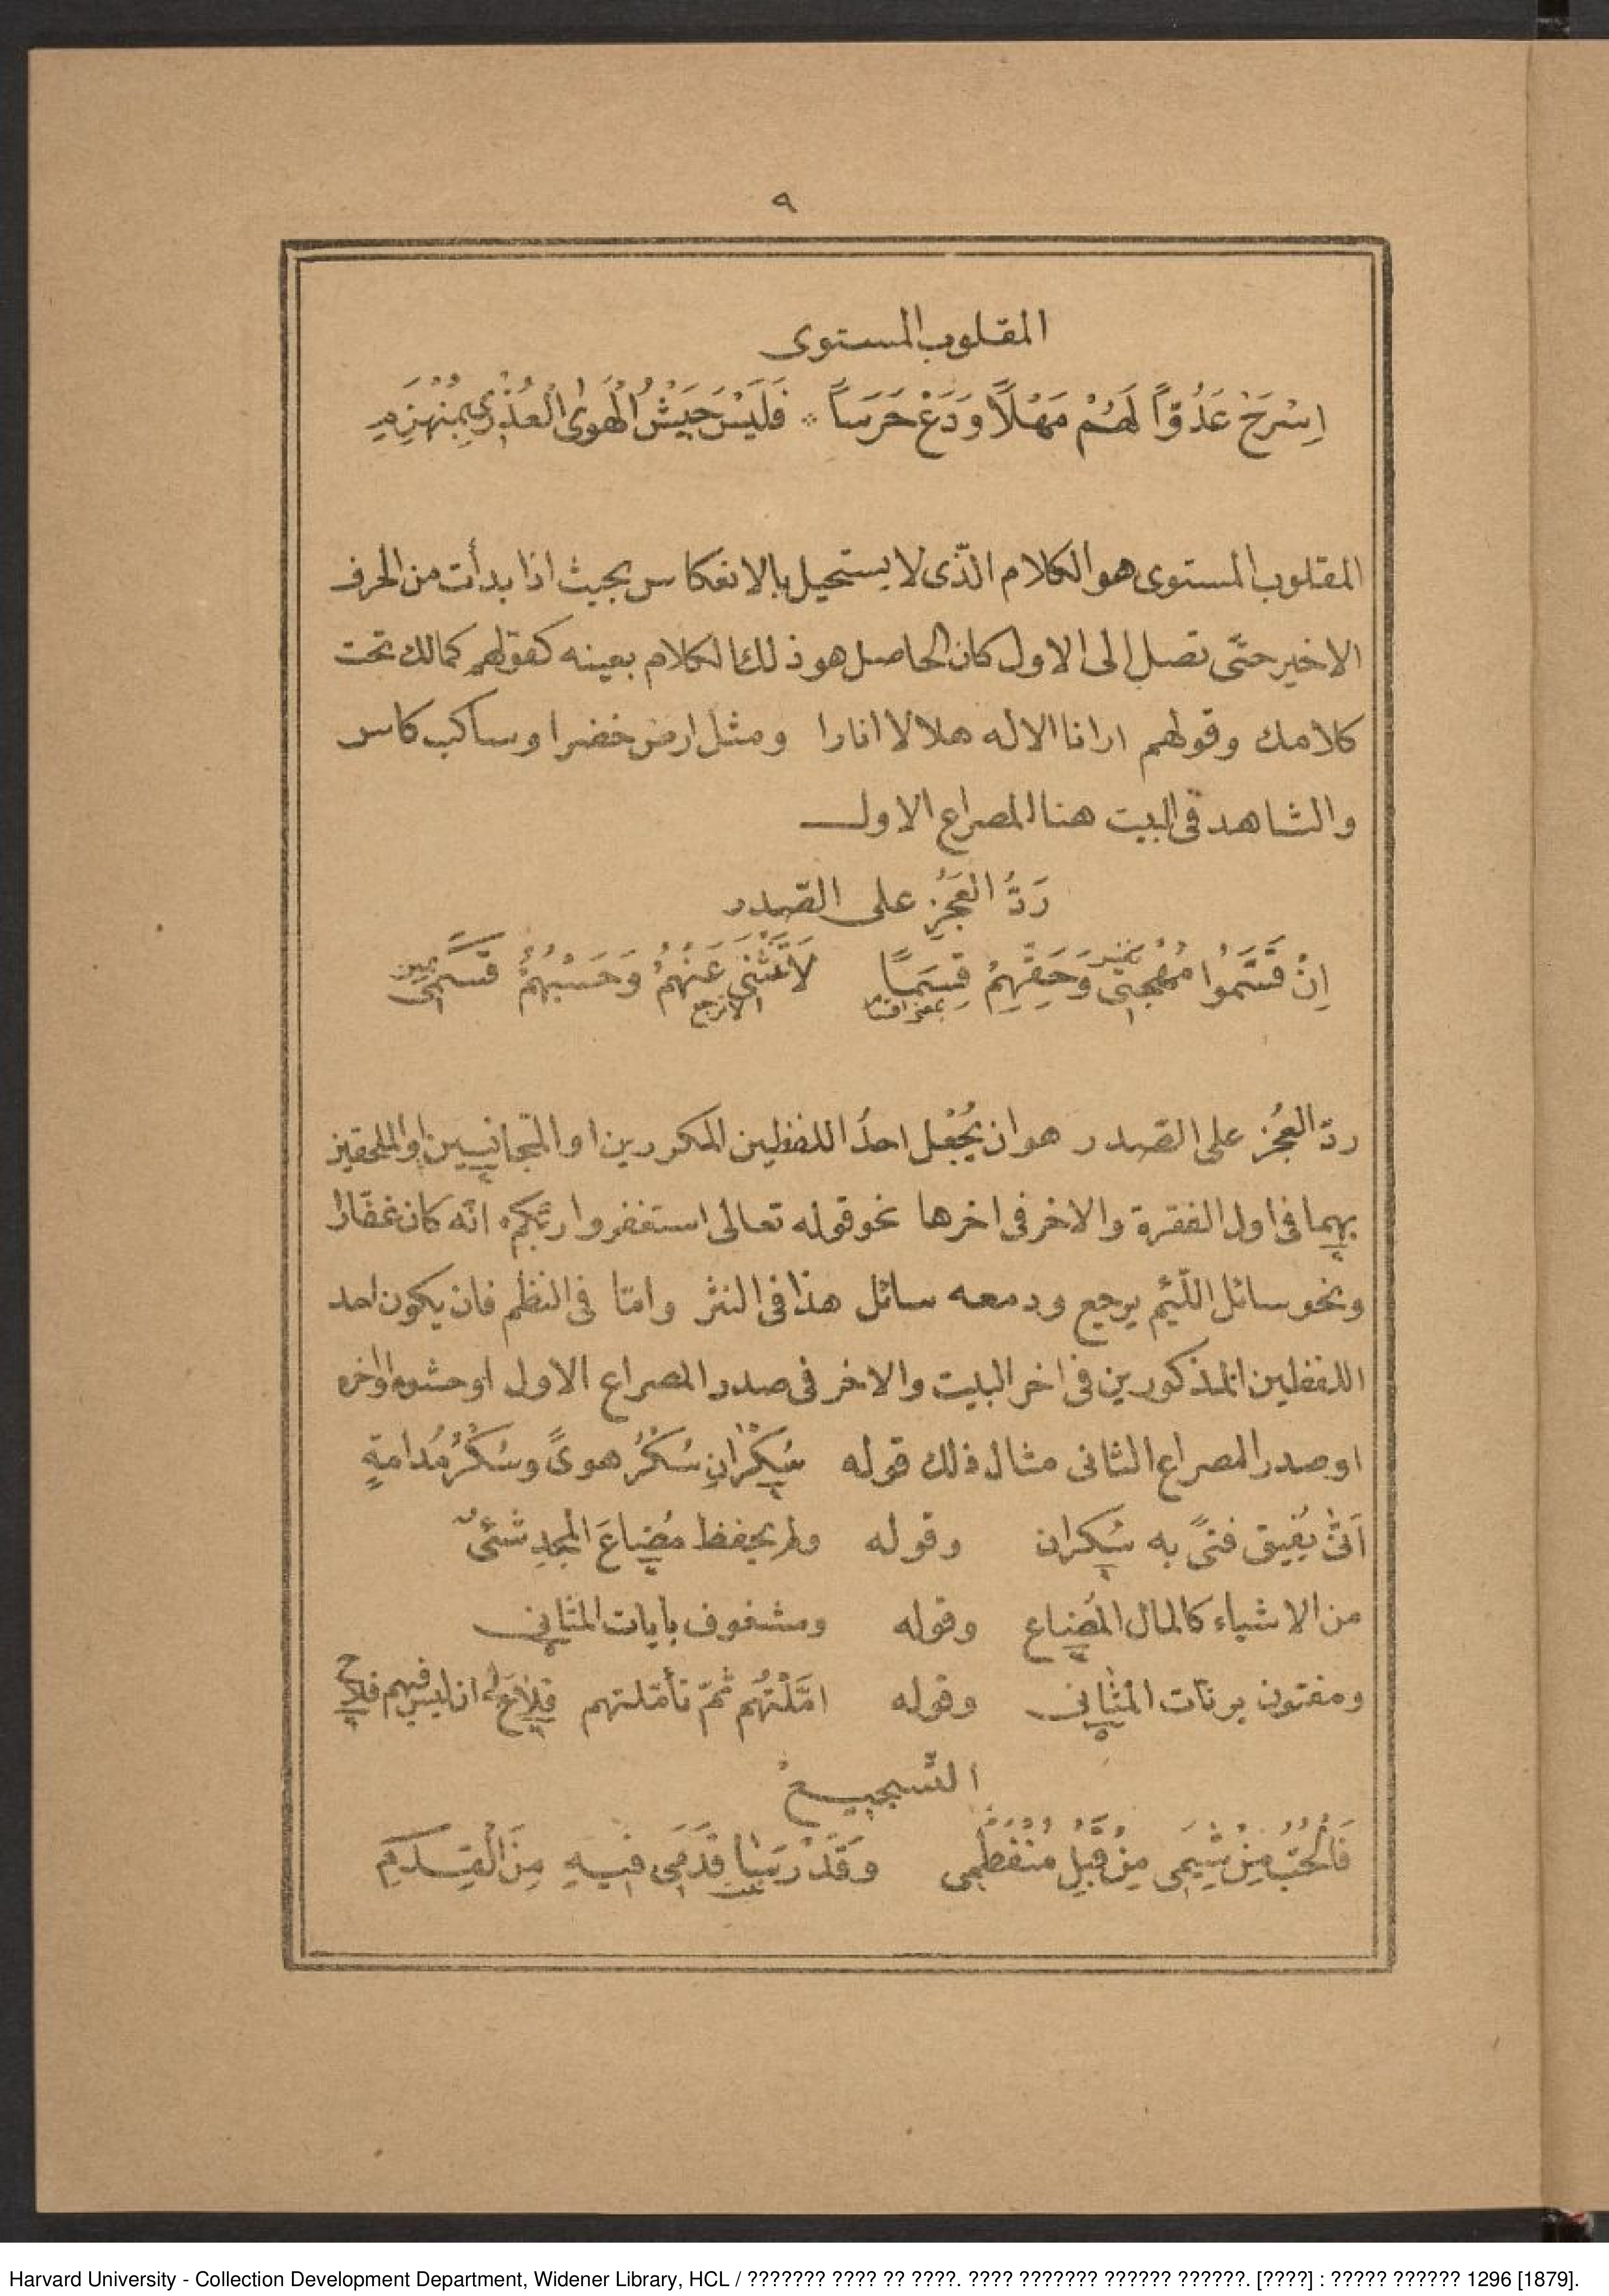 ٩
المقلوب المستوى
اِسْرَحْ عَدُوّاً لَهُمْ مَهْلًا وَدَعْ حَرَسَاً ❊ فَلَيْسَ جَيْشُ الْهَوىٰ الْعُذْرِي بِمُنْهَزِمِ
المقلوب المستوى هو الكلام الّذى لا يستحيل بالانعكاس بحيث اذا بدأت من الحرف
الاخير حتّى تصل الى الاول كان الحاصل هو ذلك الكلام بعينه كقولهم كمالك تحت
كلامك وقولهم ارانا الاله هلالا انارا ومثل ارض خضرا وساكب كاس
والشاهد فى البيت هنا المصراع الاول
رَدُّ الْعَجُزِ على الصّدر
اِنْ قَسَّمُوا مُهْجَتِى وَحَقِّهِمْ قِسَمًا لَا نَنْثَنِى عَنْهُمُ وَحَسْبُهُمْ قَسَمِى
ردّ العجُز على الصّدر هو ان يُجْعَل احدُ اللفظين المكررين او المتجانسين او الملحقين
بهما فى اول الفقرة والاخر فى اخرها نحو قوله تعالى استغفروا ربّكم انّه كان غفّارا
ونحو سائل اللّئيم يرجع ودمعه سائل هذا فى النثر وامّا فى النظم فان يكون احد
اللفظين المذكورين فى اخر البيت والاخر فى صدر المصراع الاول او حشوه او اخره
او صدر المصراع الثانى مثال ذلك قوله سُكْرَانِ سُكْرُ هوىً وسُكْرُ مُدامةٍ
اَنّىٰ يُفيق فتىً به سُكران وقوله ولم يحفظ مُضاعَ المجدِ شئىٌ
من الاشياء كالمال المُضاع وقوله ومشغوف بايات المثانى
ومفتون برنات المثانى وقوله امَّلْتُهُم ثمّ تأمّلتهم فلاحَ لى ان ليس فيهم فلاح
التّسجيع
فَالْحُبُّ مِنْ شِيَمِى مِنْ قَبْلِ مُنْفَطَمِى وَقَدْ رَسَا قَدَمِى فِيهِ مِنَ الْقِدَمِ
Harvard University - Collection Development Department, Widener Library, HCL / ??????? ???? ?? ????. ???? ??????? ?????? ??????. [????] : ????? ?????? 1296 [1879].